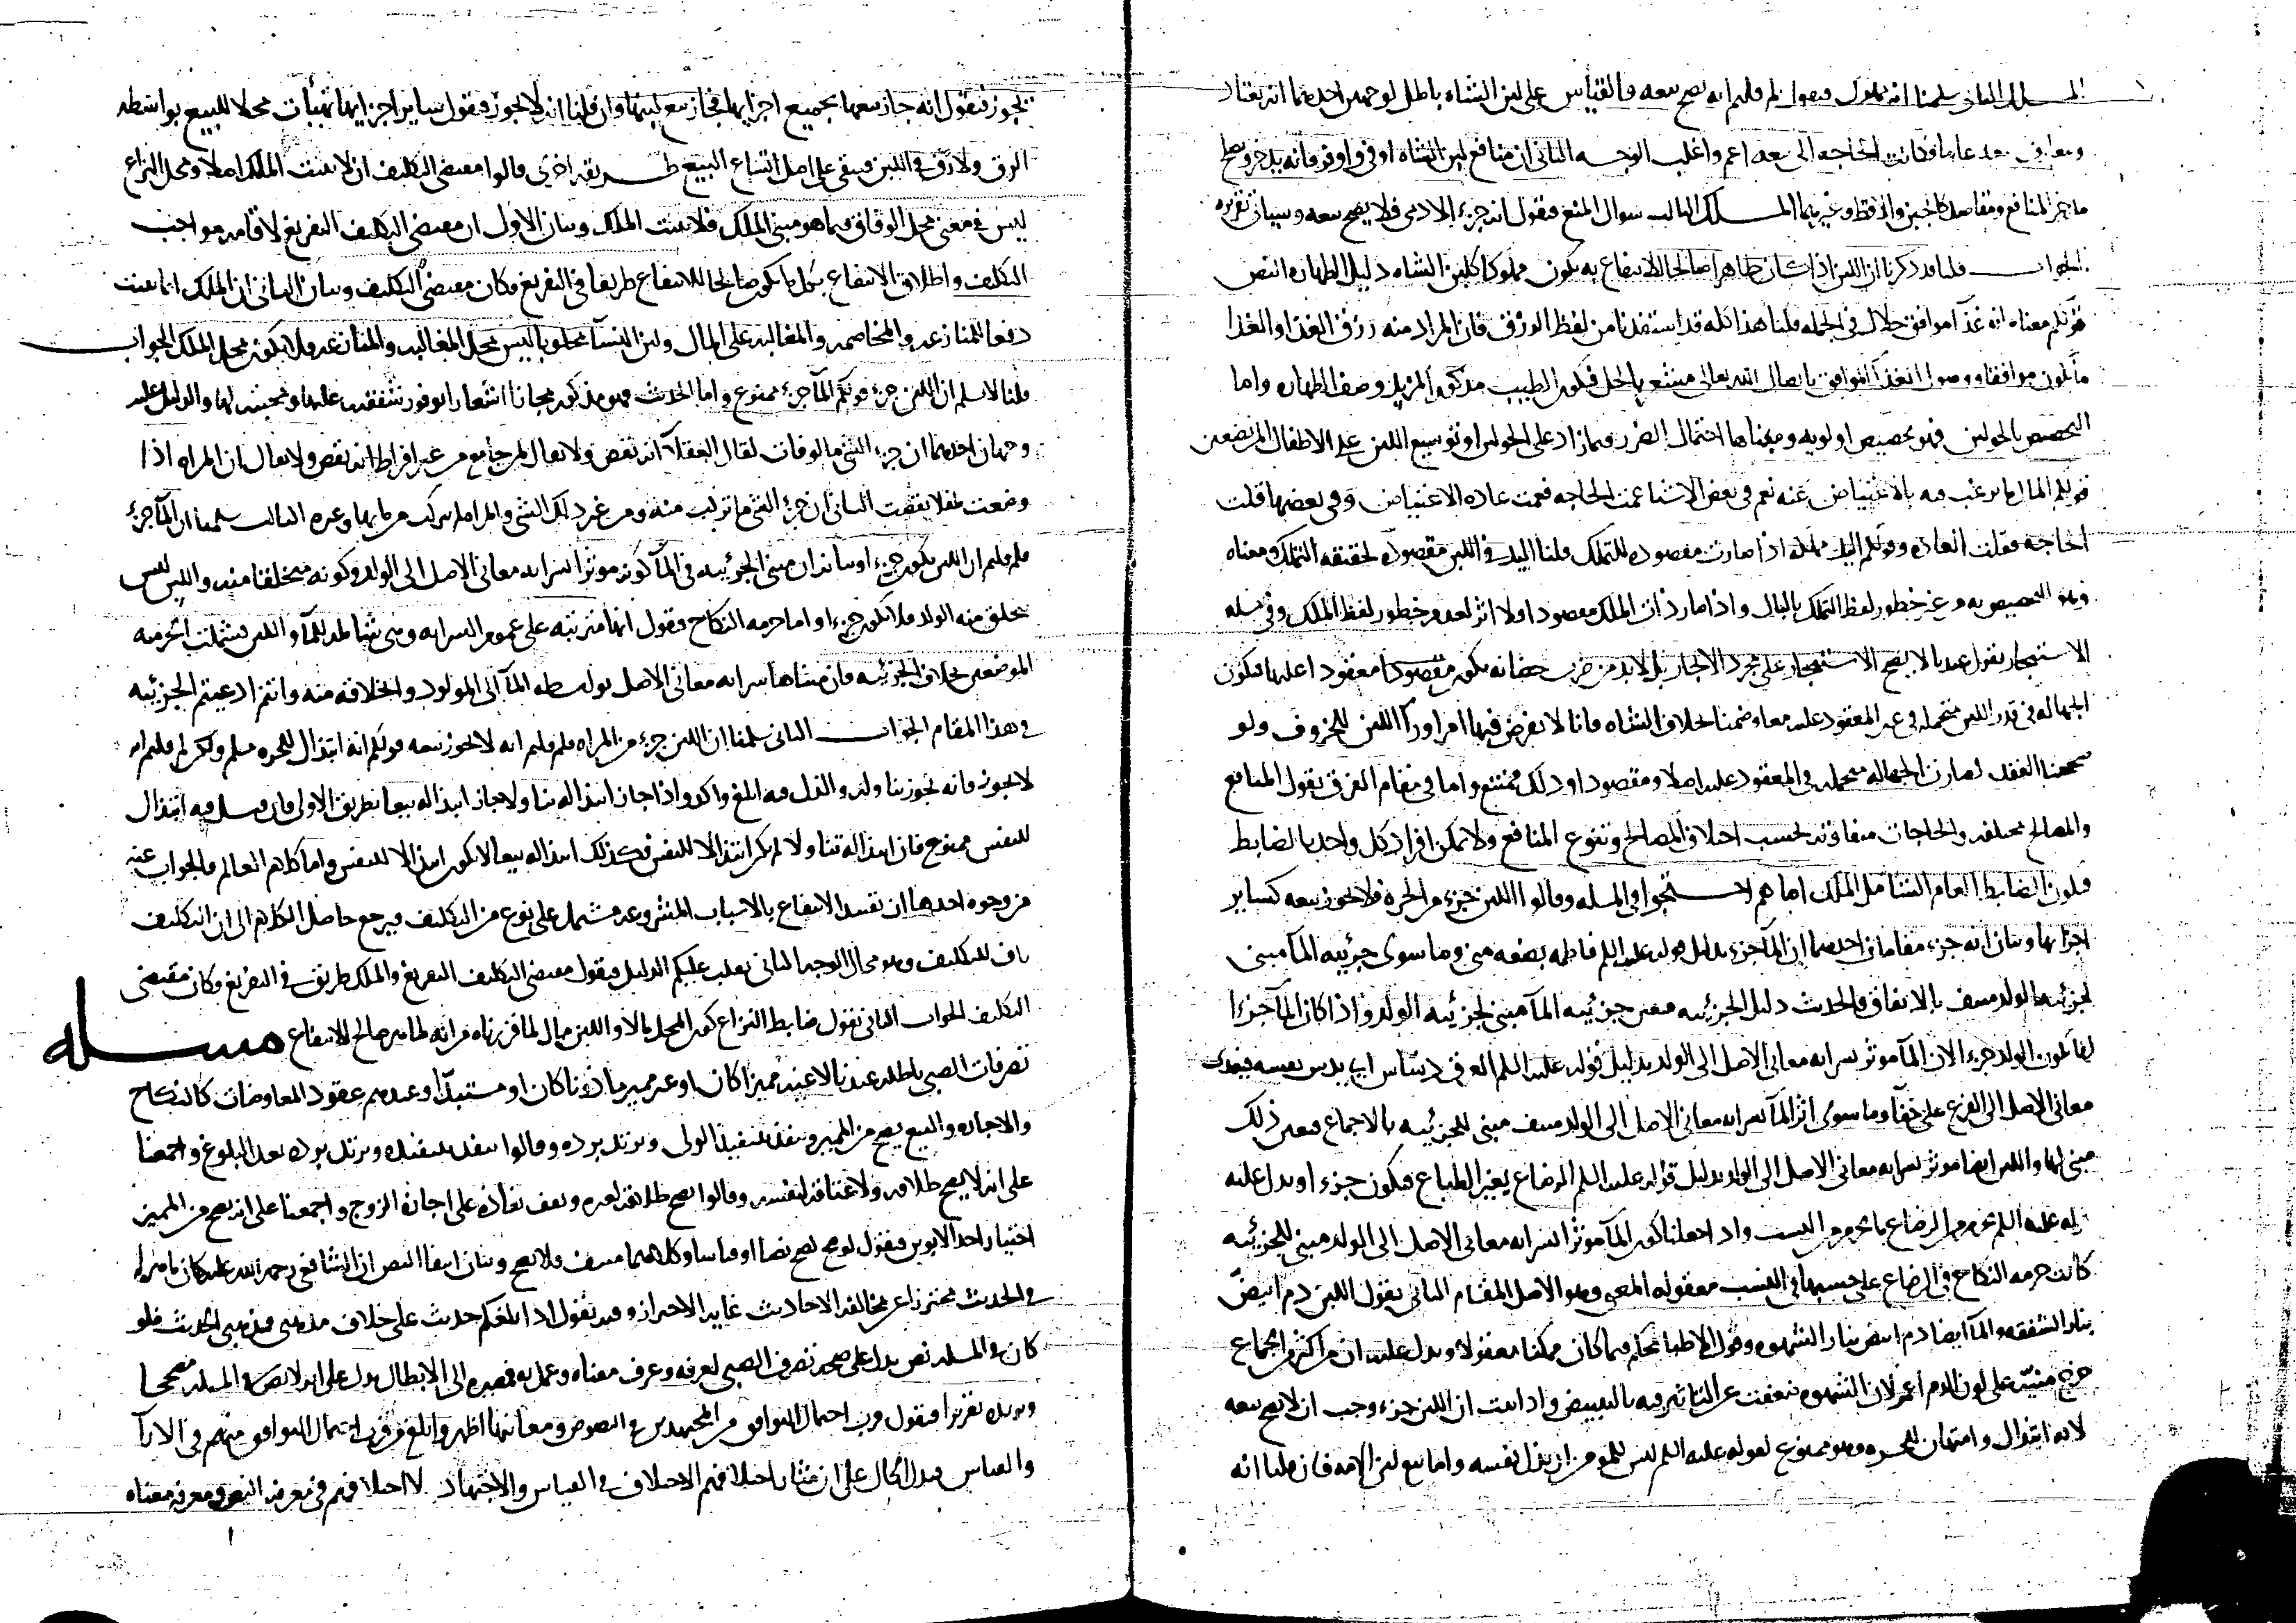 المسلك الثاني سلمنا انه مملوك فنقول لم قلتم انه يصح بيعه والقياس على لبن الشاه باطل لوجهين احدهما انه يعتاد
وتعارف بيعه عاما وكانت الحاجه الى بيعه اعم واغلب الوجه الثاني ان منافع لبن الشاه اوفى واوفر فانه يدخر ويصلح
من المنافع ومقاصد كالجبن والاقط وغيرهما المسلك الثالث سوال المنع فنقول انه جزء الادمي فلا يصح بيعه وبيان تقريره
الجواب قلنا قد ذكرنا ان اللبن اذا كان طاهرا صالحا للانتفاع به يكون مملوكا كلبن الشاه دليل الطهاره النص
قولكم معناه انه غذآ موافق حلال في الجمله قلنا هذا كله قد استفدنا من لفظ الرزق فان المراد منه رزق الغذا والغذا
ما يكون موافقا ووصول الغذآ الموافق بايصال الله تعالى مشعر بالحل فيكون الطيب مذكورا لمزيد وصف الطهاره واما
التخصيص بالحولين فهو تخصيص اولويه ومعناها احتمال الضرر فيما زاد على الحولين او توسيع اللبن على الاطفال المرتضعين
قولكم المال ما يرغب فيه بالاعتياض عنه نعم في بعض الاشيا عمت الحاجه فعمت عاده الاعتياض وفي بعضها قلت
الحاجه فقلت العاده وقولكم اليد مملكه اذا صارت مقصوده للتملك قلنا اليد في اللبن مقصوده لحقيقه التملك ومعناه
وهو التخصيص به من غير خطور لفظ التملك بالبال واذا صار ذات الملك مقصودا ولا اثر لعدم خطور لفظ الملك وفي مسله
الاستيجار نقول عندنا لا يصح الاستيجار على مجرد الالبان بل لا بد من ضرب حضانه يكون مقصودا معقودا عليها فيكون
الجهاله في قدر اللبن متحمله في غير المعقود عليه معاوضمنا بخلاف الشاه فانا لا نفرض فيها امرا ورآ اللبن للخروف ولو
صححنا العقد لصارت الجهاله متحمله في المعقود عليه اصلا ومقصودا وذلك ممتنع واما في مقام الفرق نقول المنافع
والمصالح مختلفه والحاجات متفاوته بحسب اختلاف المصالح وتنوع المنافع ولا يمكن افراد كل واحد بالضابط
فيكون الضابط العام الشامل الملك اما هم احتجوا في المسله وقالوا اللبن جزء من الحره فلا يجوز بيعه كساير
اجزائها وبيان انه جزء مقامان احدهما ان المآ جزء بدليل قوله عليه السلم فاطمه بضعه مني وما سوى جزئيه المآ مبنى
لجزئيه الولد منتف بالاتفاق والحديث دليل الجزئيه فتعين جزئيه المآ مبنى لجزئيه الولد واذا كان المآ جزءا
يكون الولد جزء الان المآ موثر بسرايه معاني الاصل الى الولد بدليل قوله عليه السلم العرق دساس اي يدس نفسه فيعدى
معاني الاصل الى الفرع على خفآ وما سوى اثر المآ بسرايه معاني الاصل الى الولد منتف مبنى للجزئيه بالاجماع فتعين ذلك
مبنى لها واللبن ايضا موثر بسرايه معاني الاصل الى الولد بدليل قوله عليه السلم الرضاع يغير الطباع فيكون جزء او يدل عليه
قوله عليه السلم يحرم من الرضاع ما يحرم من النسب واذا جعلنا كون المآ موثرا بسرايه معاني الاصل الى الولد مبنى للجزئيه
كانت حرمه النكاح في الرضاع على حسبها في النسب معقوله المعنى وهو الاصل المقام الثاني نقول اللبن دم ابيض
بنار الشفقه والمآ ايضا دم ابيض بنار الشهوه وقول الاطبا محكم فيما كان ممكنا معقولا ويدل عليه ان من اكثر من الجماع
خرج منيّه على لون الدم احمر لان الشهوه ضعفت عن التاثير فيه بالتبييض واذا ثبت ان اللبن جزء وجب ان لا يصح بيعه
لانه ابتذال وامتهان للحره وهو ممنوع لقوله عليه السلم ليس للمومن ان يذل نفسه واما بيع لبن الامه فان قلنا انه
يجوز فنقول انه جاز بيعها بجميع اجزايها فجاز بيع لبنها وان قلنا انه لا يجوز فنقول ساير اجزايها تهيأت محلا للبيع بواسطه
الرق ولا رق في اللبن فيبقى على اصل امتناع البيع طريقه اخرى قالوا مقتضى التكليف ان لا يثبت الملك اصلا ومحل النزاع
ليس في معنى محل الوفاق فيما هو مبنى الملك فلا يثبت الملك وبيان الاول ان مقتضى التكليف التفريغ لاقامه مواجب
التكليف واطلاق الانتفاع بكل ما يكون صالحا للانتفاع طريقا في التفريغ فكان مقتضى التكليف وبيان الثاني ان الملك انما يثبت
دفعا للمنازعه والمخاصمه والمغالبه على المال ولبن النسآ محلوبا ليس محل المغالبه والمنازعه فلا يكون محل الملك الجواب
قلنا لا نسلم ان اللبن جزء قولكم المآ جزء ممنوع واما الحديث فهو مذكور مجازا اشعارا بوفور شفقته عليها ومحبته لها والدليل عليه
وجهان احدهما ان جزء الشي ما لو فات لقال العقلآ انه نقص ولا يقال لمن جامع من غير افراط انه نقص ولا يقال ان المراه اذا
وضعت طفلا نقصت الثاني ان جزء الشي ما تركب منه ومن غير ذلك الشي والمراه لم تتركب من مايها وغيره الثالث سلمنا ان المآ جزء
فلم قلتم ان اللبن يكون جزء او بيانه ان مبنى الجزئيه في المآ كونه موثرا بسرايه معاني الاصل الى الولد وكونه متخلقا منه واللبن ليس
يتخلق منه الولد فلا يكون جزءا واما حرمه النكاح فنقول انها مترتبه على عموم السرايه وهي شامله للمآ واللبن فشملت الحرمه
الموضعين بخلاف الجزئيه فان مبناها سرايه معاني الاصل بواسطه المآ الى المولود والخلاقه منه وانتم ادعيتم الجزئيه
في هذا المقام الجواب الثاني سلمنا ان اللبن جزء من المراه فلم قلتم انه لا يجوز بيعه قولكم انه ابتذال للحره مسلم ولكن لم قلتم انه
لا يجوز فانه يجوز تناوله والذل فيه ابلغ واكد واذا جاز ابتذاله تناولا جاز ابتذاله بيعا بطريق الاولى فان قيل فيه ابتذال
للنفس ممنوع فان ابتذاله تناولا لم يكن ابتذالا للنفس فكذلك ابتذاله بيعا لا يكون ابتذالا للنفس واما كلام العالم فالجواب عنه
من وجوه احدها ان تقييد الانتفاع بالاسباب المشروعه مشتمل على نوع من التكليف فيرجع حاصل الكلام الى ان التكليف
ناف للتكليف وهو محال الوجه الثاني نقلب عليكم الدليل فنقول مقتضى التكليف التفريغ والملك طريق في التفريغ فكان مقتضى
التكليف الجواب الثاني نقول ضابط النزاع كون المحل مالا واللبن مال لما قررناه من انه طاهر صالح للانتفاع مسله
تصرفات الصبي باطله عندنا لاغيه مميزا كان او غير مميز ماذونا كان او مستبدّا وعندهم عقود المعاوضات كالنكاح
والاجاره والبيع يصح من المميز وينفذ بتنفيذ الولى ويرتد برده وقالوا ينفذ بتنفيذه ويرتد برده بعد البلوغ واجمعنا
على انه لا يصح طلاقه ولا عتاقه لنفسه وقالوا يصح طلاقه لغيره ويقف نفاذه على اجازه الزوج واجمعنا على انه يصح من المميز
اختيار احد الابوين فنقول لو صح لصح نصا او قياسا وكلاهما منتف فلا يصح وبيان انتفا النص ان الشافعي رحمه الله عليه كان
في الحديث محترزا عن مخالفه الاحاديث غايه الاحتراز وقد نقول اذا بلغكم حديث على خلاف مذهبي فمذهبي الحديث فلو
كان في المسله نص يدل على صحه تصرف الصبي لعرفه وعرف معناه وعمل به فمصيره الى الابطال يدل على انه لا نص في المسله صحيحا
ونزيده تقريرا فنقول قرب احتمال التوافق من المجتهدين في النصوص ومعانيها اظهر وابلغ من قرب احتمال التوافق منهم في الارآ
والقياس فدل الحال على ان مثار اختلافهم الاختلاف في القياس والاجتهاد لا اختلافهم في معرفه النص ومعرفه معناه